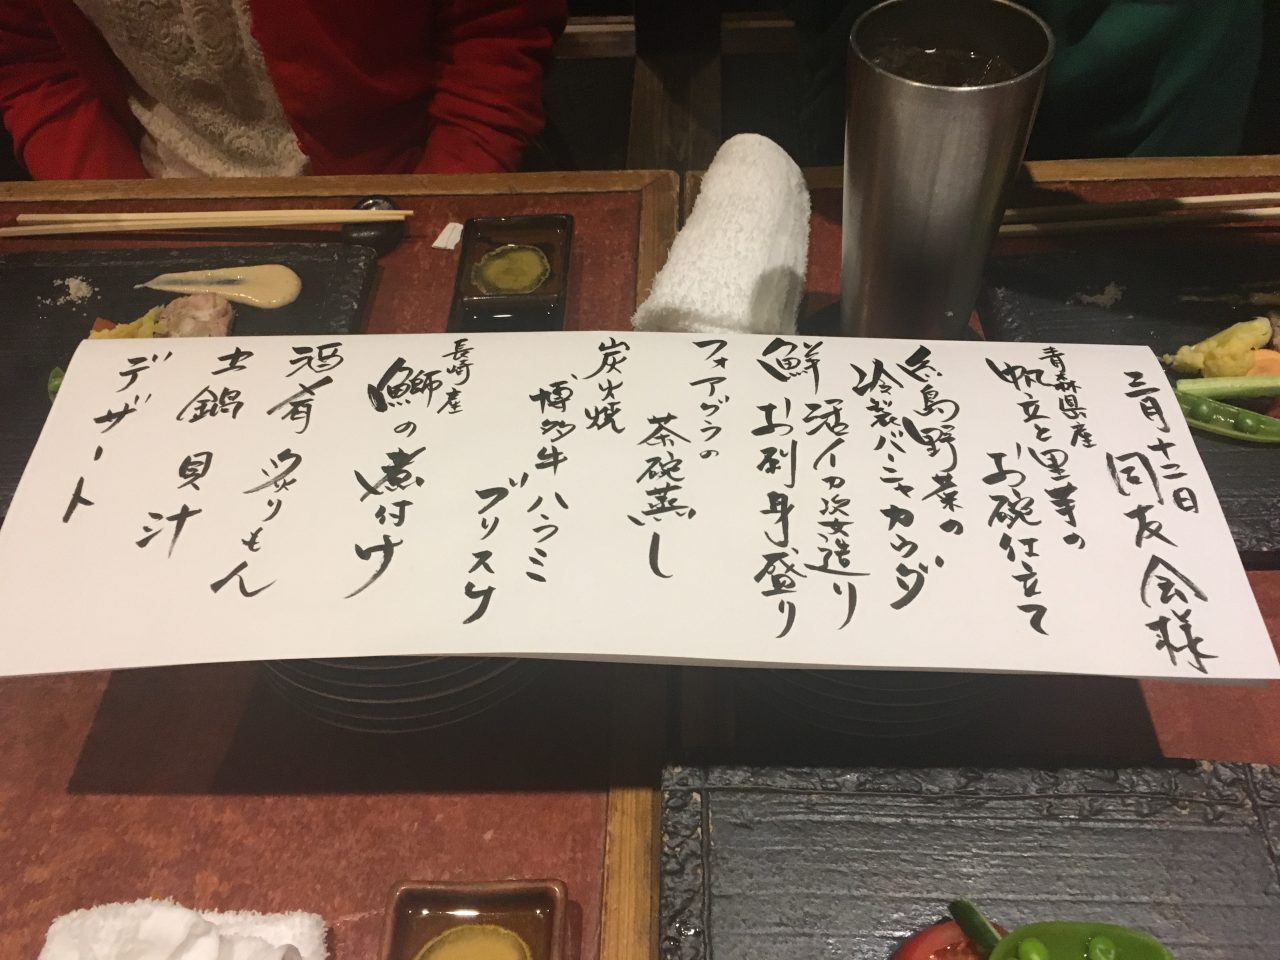 三月十二日
同友会様
青森県産
帆立と里芋の
お碗仕立て
糸島野菜の
冷製バーニャカウダ
鮮活イカ姿造り
お刺身盛り
フォアグラの
茶碗蒸し
炭火焼
博多牛ハラミ
ブリスケ
長崎産
鰤の煮付け
酒肴炙りもん
土鍋
貝汁
デザート